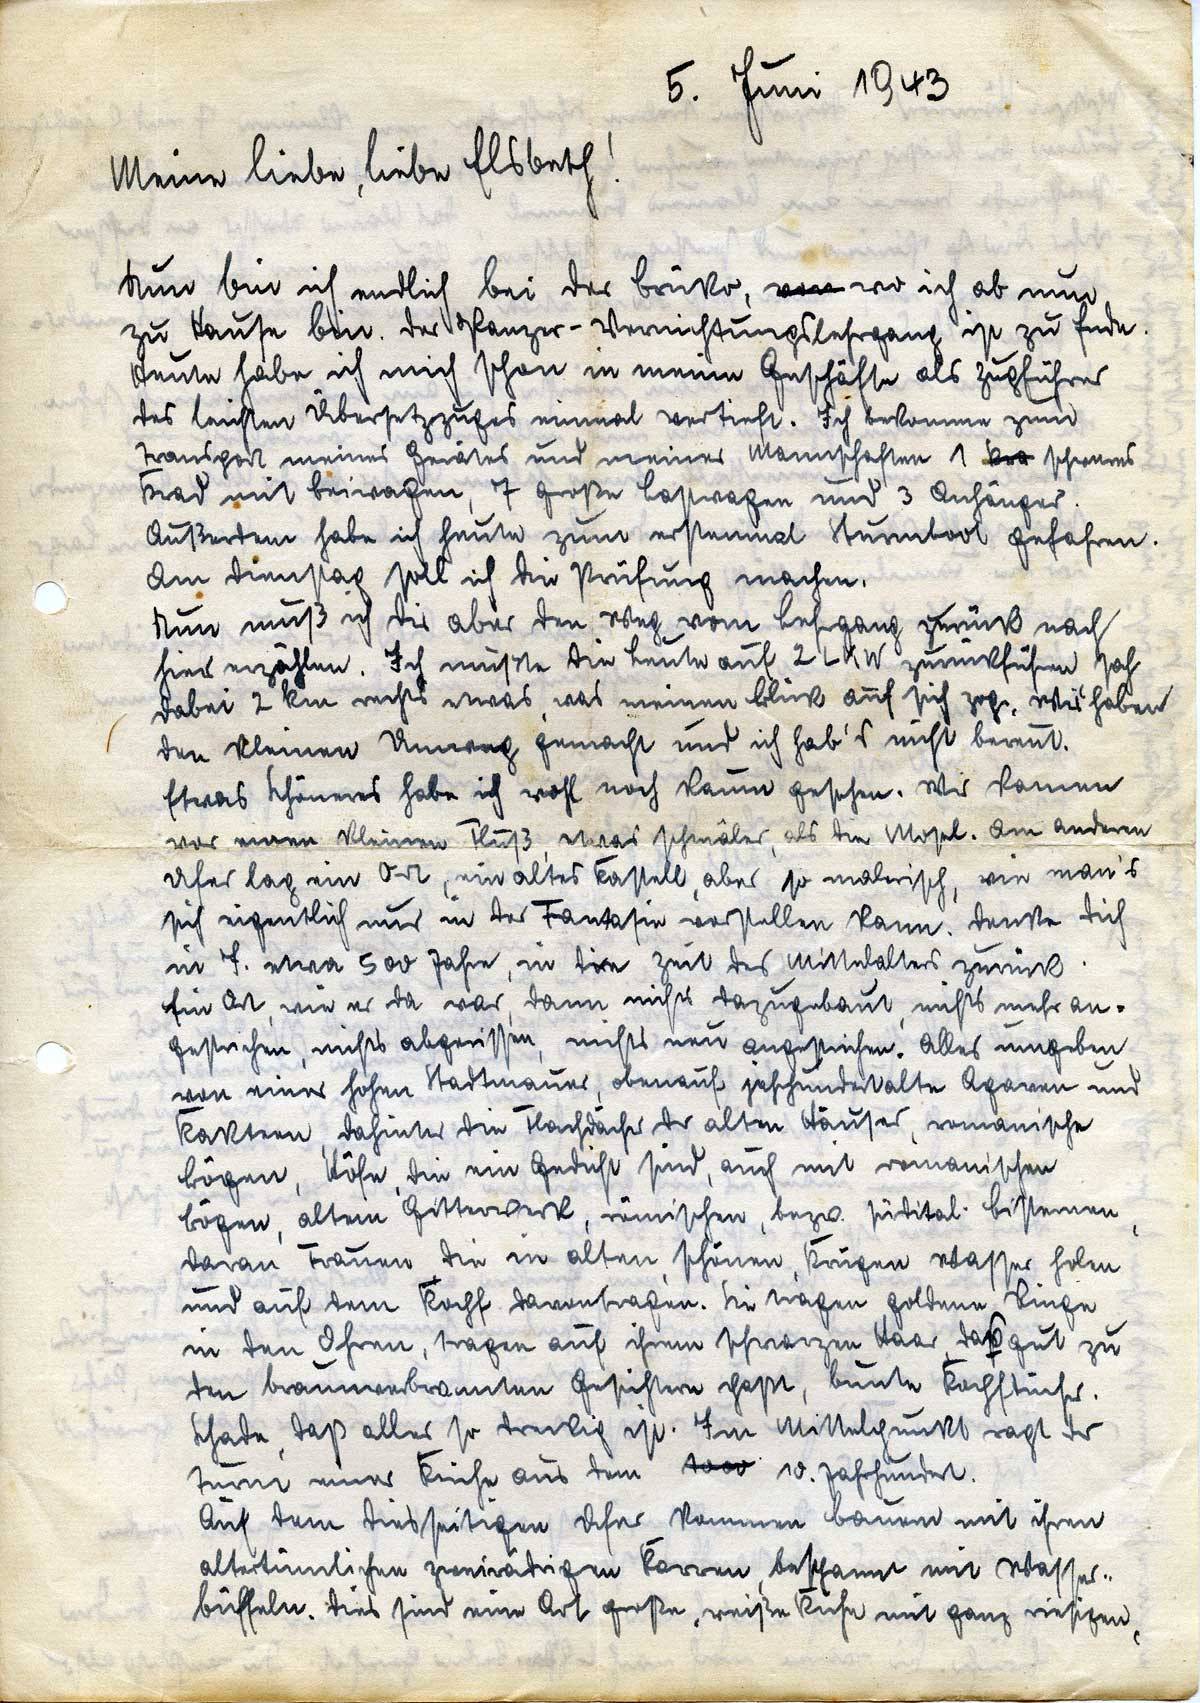 5. Juni 1943
Meine liebe, liebe Elsbeth!
Nun bin ich endlich bei der Brüko, von wo ich ab nun
zu Hause bin. Der Panzer-Vernichtungslehrgang ist zu Ende.
Heute habe ich mich schon in meine Geschäfte als Zugführer
des leichten Übersetzzuges einmal vertieft. Ich bekomme zum
Transport meines Gerätes und meiner Mannschaften 1 Kra schweres
Krad mit Beiwagen, 7 große Lastwagen und 3 Anhänger.
Außerdem habe ich heute zum erstenmal Sturmboot gefahren.
Am Dienstag soll ich die Prüfung machen.
Nun muß ich Dir aber den Weg vom Lehrgang zurück nach
hier erzählen. Ich mußte die Leute auf 2 LKW zurückführen sah
dabei 2 km rechts etwas, was meinen Blick auf sich zog. Wir haben
den kleinen Umweg gemacht und ich hab's nicht bereut.
Etwas Schöneres habe ich wohl noch kaum gesehen. Wir kamen
vor einen kleinen Fluß, etwas schmäler, als die Mosel. Am anderen
Ufer lag ein Ort, ein altes Kastell, aber so malerisch, wie man's
sich eigentlich nur in der Fantasie vorstellen kann. Denke Dich
in J. etwa 500 Jahre, in die Zeit des Mittelalters zurück.
Ein Ort, wie er da war, dann nichts dazugebaut, nichts mehr an-
gestrichen, nichts abgerissen, nichts neu angestrichen. Alles umgeben
von einer hohen Stadtmauer, obenauf jahrhundertalte Agaven und
Kakteen, dahinter die Flachdächer der alten Häuser, romanische
Bögen, Höfe, die ein Gedicht sind, auch mit romanischen
Bögen, altem Gitterwerk, römischen, bezw. südital. Zisternen,
daran Frauen die in alten, schönen, Krügen Wasser holen
und auf dem Kopf davontragen. Sie tragen goldene Ringe
in den Ohren, tragen auf ihrem schwarzen Haar, das gut zu
den braunverbrannten Gesichtern paßt, bunte Kopftücher.
Schade, daß alles so dreckig ist. Im Mittelpunkt ragt der
Turm einer Kirche aus dem 1000 10. Jahrhundert.
Auf dem diesseitigen Ufer kommen Bauern mit ihren
altertümlichen zweirädrigen Karren, bespannt mit Wasser-
büffeln. Dies sind eine Art große, weiße Kühe mit ganz riesigen,